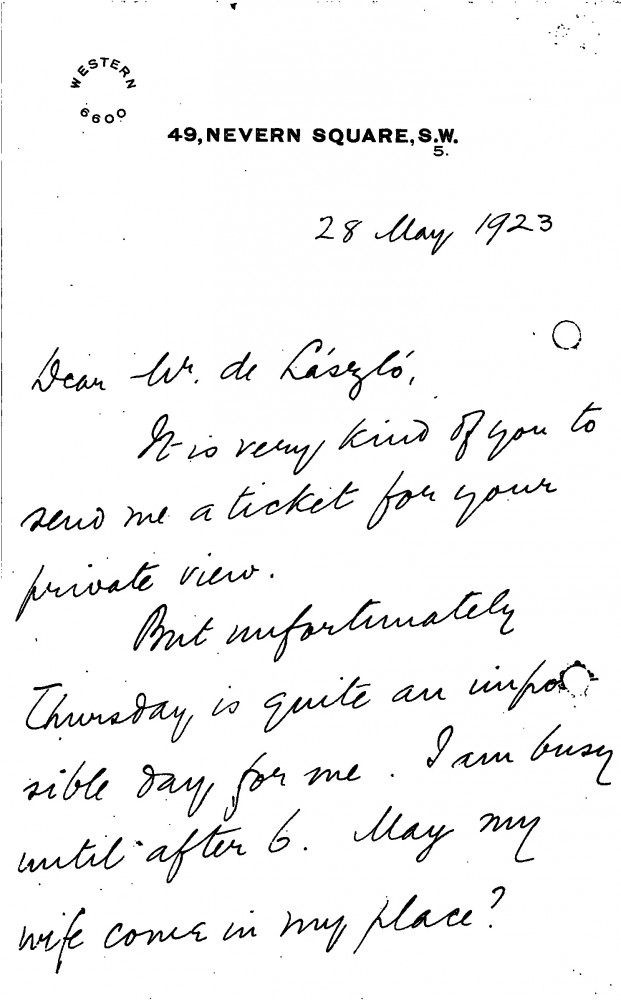 WESTERN
6600
49, NEVERN SQUARE, S.W.
5.
28 May 1923
Dear Mr. de László,
It is very kind of you to
send me a ticket for your
private view.
But unfortunately
Thursday is quite an impos
sible day for me. I am busy
until after 6. May my
wife come in my place?